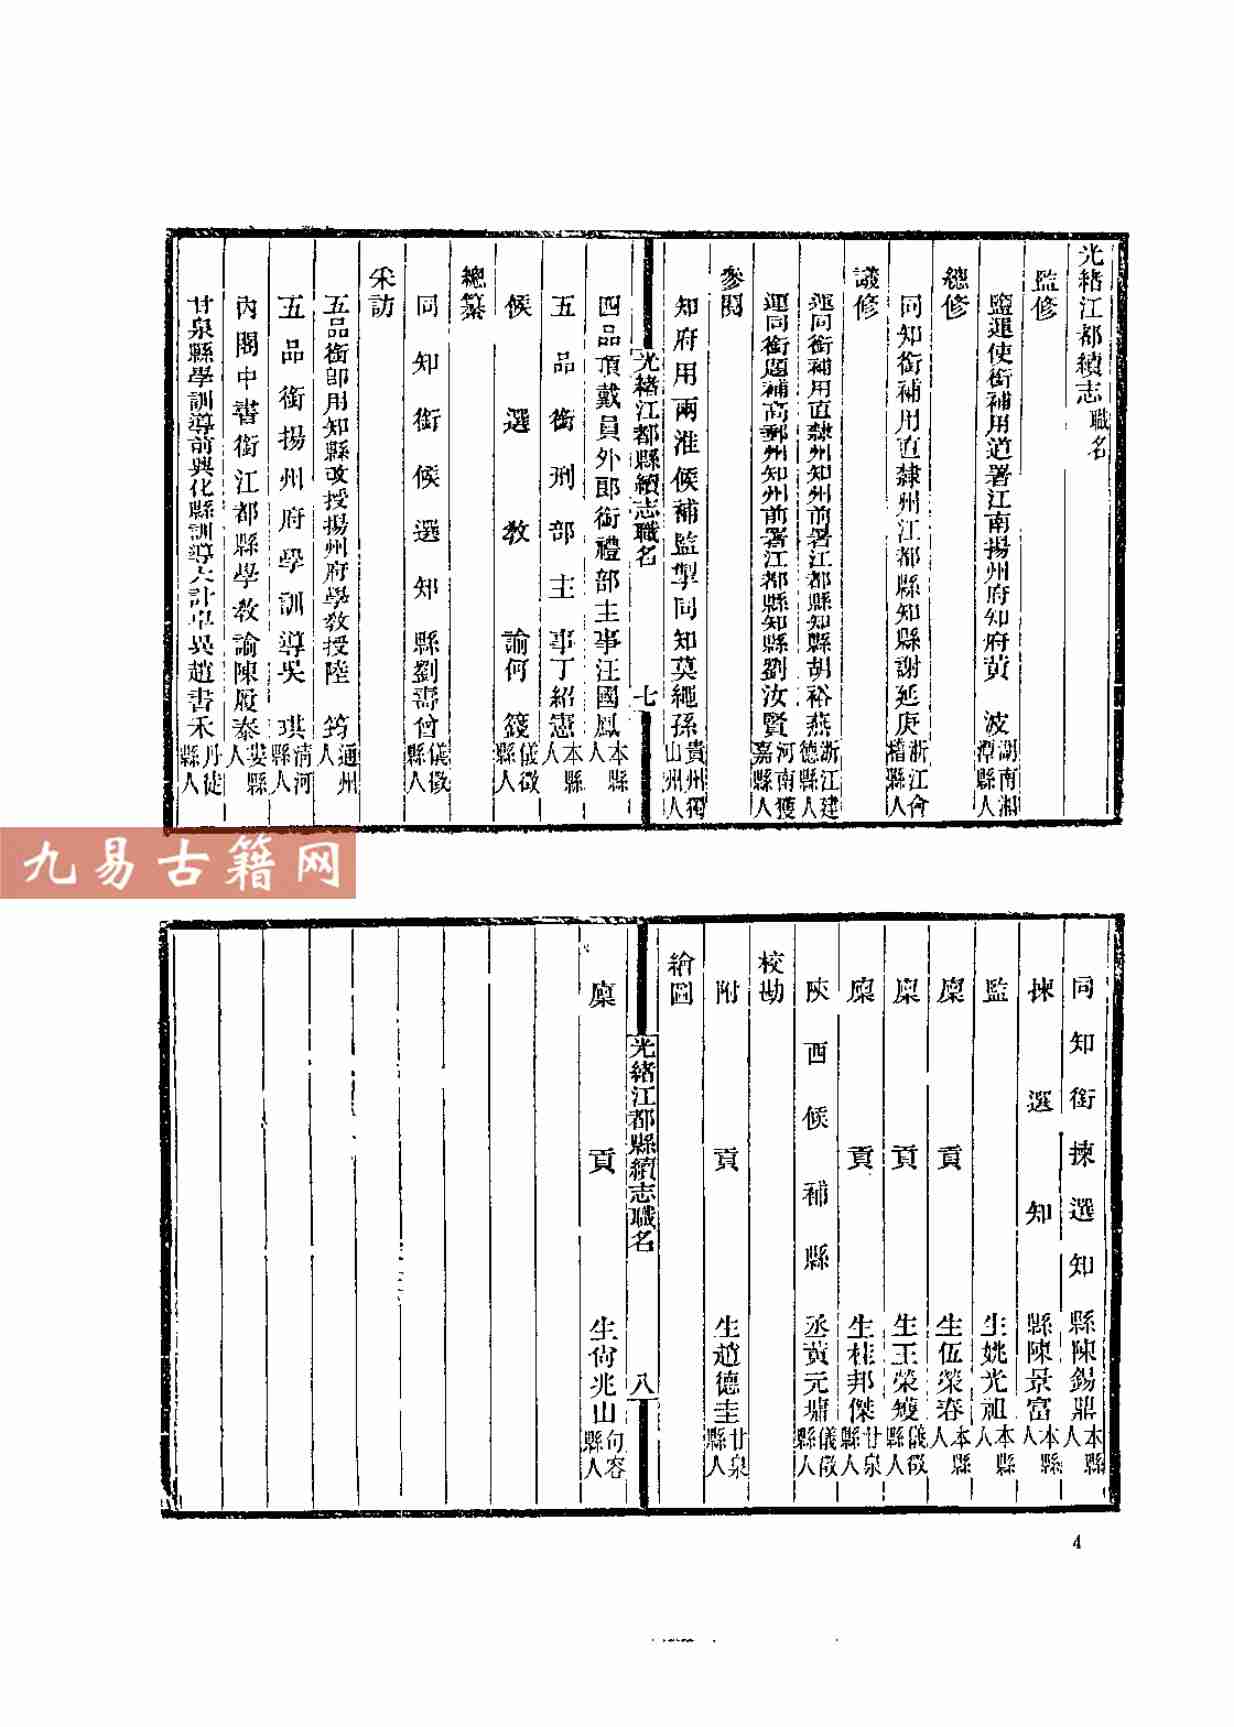 光緒江都續志職名
監修
鹽運使銜補用道署江南揚州府知府黃 波湖南湘潭縣人
總修
同知銜補用直隸州江都縣知縣謝延庚浙江會稽縣人
議修
運同銜補用直隸州知州前署江都縣知縣胡裕燕浙江建德縣人
運同銜題補高郵州知州前署江都縣知縣劉汝賢河南獲嘉縣人
參閱
知府用兩淮候補監掣同知莫繩孫貴州獨山州人
光緒江都縣續志職名 七
四品頂戴員外郎銜禮部主事汪國鳳本縣人
五品銜刑部主事丁紹憲本縣人
候選教諭何籛儀徵縣人
總纂
同知銜候選知縣劉壽曾儀徵縣人
采訪
五品銜卽用知縣改授揚州府學教授陸 筠通州人
五品銜揚州府學訓導吳 琪清河縣人
內閣中書銜江都縣學教諭陳履泰婁縣人
甘泉縣學訓導前興化縣訓導大計卓異趙書禾丹徒縣人
同知銜揀選知縣陳錫鼎本縣人
揀選知縣陳景富本縣人
監生姚光祖本縣人
廩貢生伍榮春本縣人
廩貢生王榮䕶儀徵縣人
廩貢生桂邦傑甘泉縣人
陝西候補縣丞黃元墉儀徵縣人
校勘
附貢生趙德圭甘泉縣人
繪圖
光緒江都縣續志職名 八
廩貢生尙兆山句容縣人
4
九易古籍网